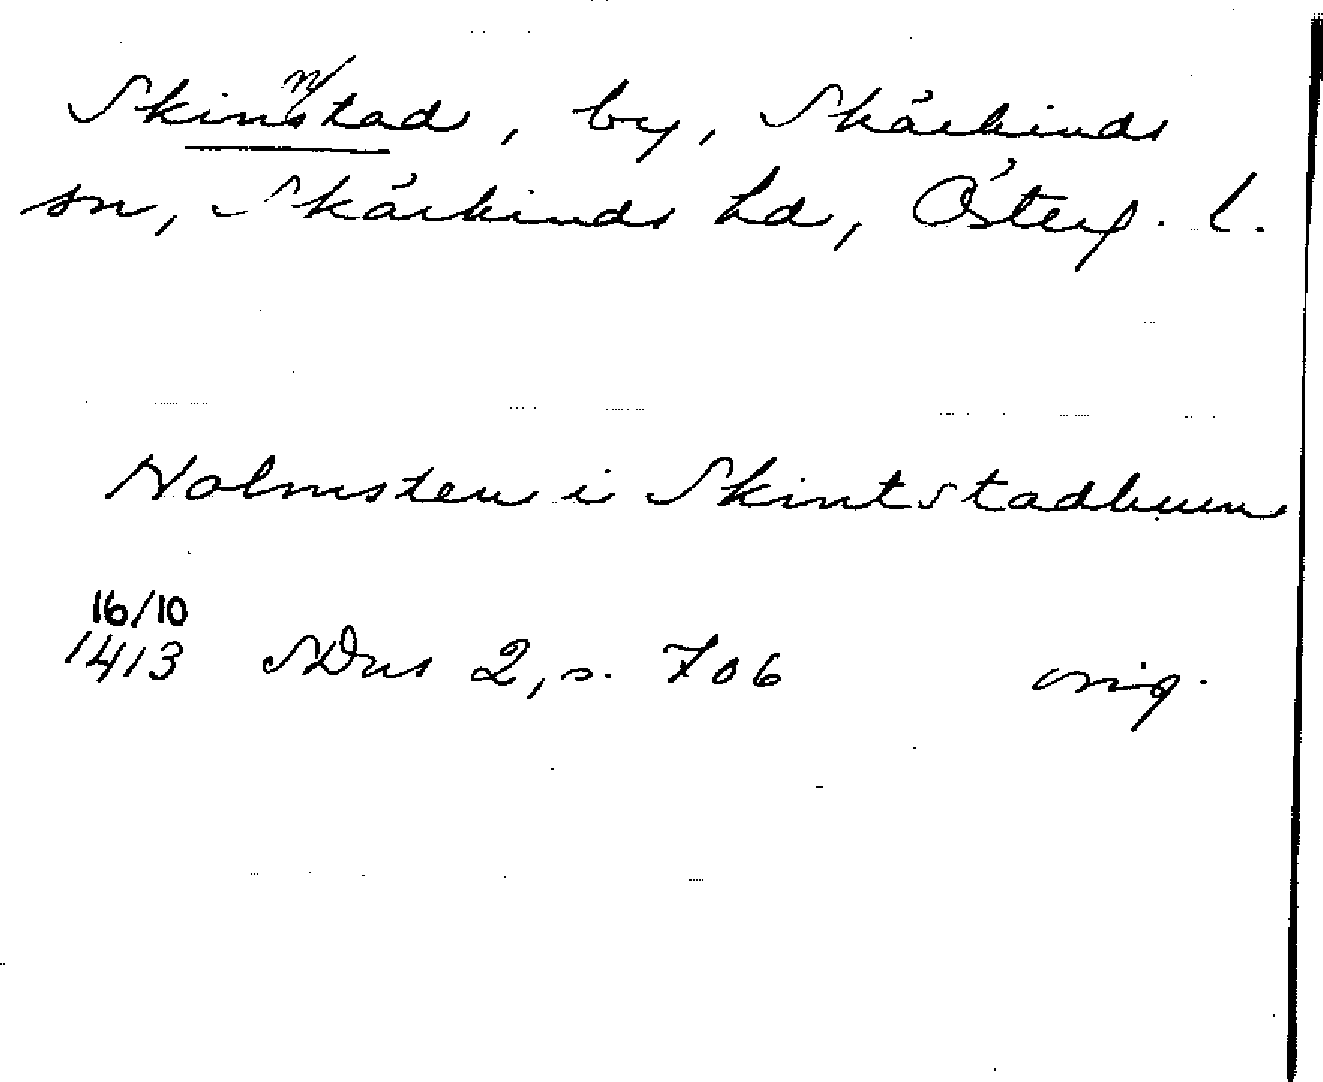 Skinnstad, by, Skärkinds
sn, Skärkinds hd, Österg. l.
Holmsten i Skintstadhum
16/10
1413 SDns 2, s. 706 orig.